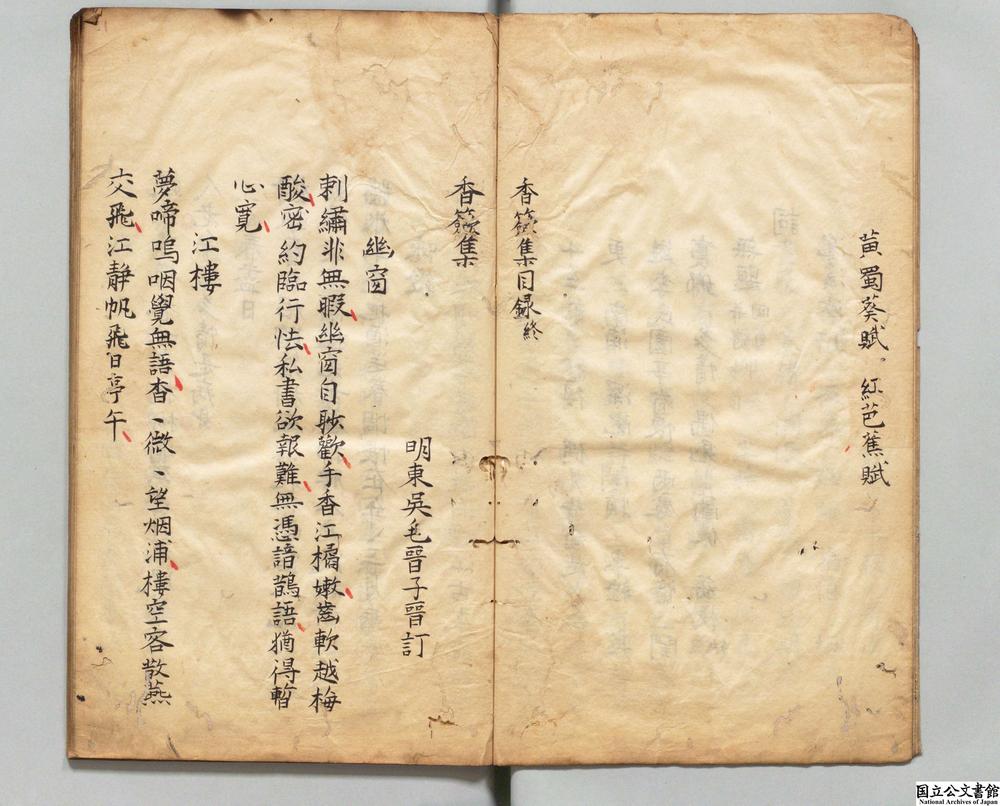 黃蜀葵賦。紅芭蕉賦
香籢集目録終
香籢集
明東吳毛晉子晉訂
幽窗
刺繡非無暇幽窗自眇歡手香江橘嫩齒軟越梅
酸密約臨行怯私書欲報難無憑諳鵲語猶得暫
心寬
江樓
夢啼嗚咽覺無語杳、微、望烟浦樓空客散燕
交飛江靜帆飛日亭午
国立公文書館
National Archives of Japan